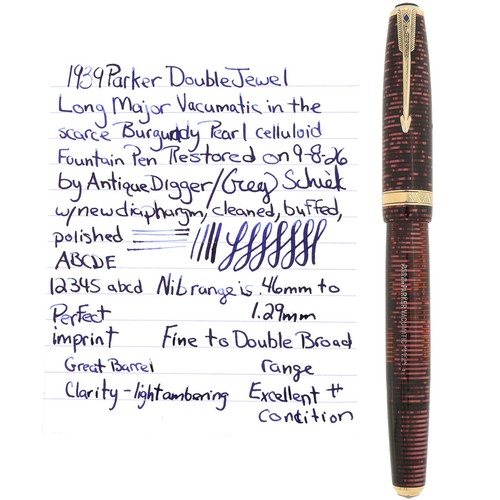 1939 Parker Double Jewel
Long Major Vacumatic in the
scarce Burgundy Pearl celluloid
Fountain Pen Restored on 9-8-26
by Antique Digger/Greg Schiek
w/new diaphargm, cleaned, buffed,
polished
ABCDE
12345 abcd Nib range is .46mm to
Perfect 1.29mm
imprint Fine to Double Broad
Great Barrel range
Clarity - light ambering Excellent +
condition
PARKER VACUMATIC